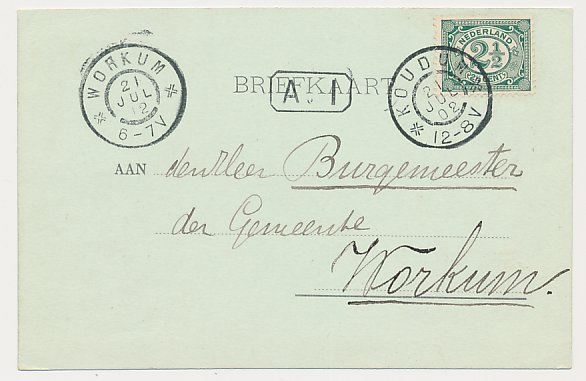 WORKUM
21
JUL
12
6-7V
BRIEFKAART
A I
KOUDUM
21
JUL
02
12-8V
NEDERLAND
2½
CENT
AAN den Heer Burgemeester
der Gemeente
Workum.